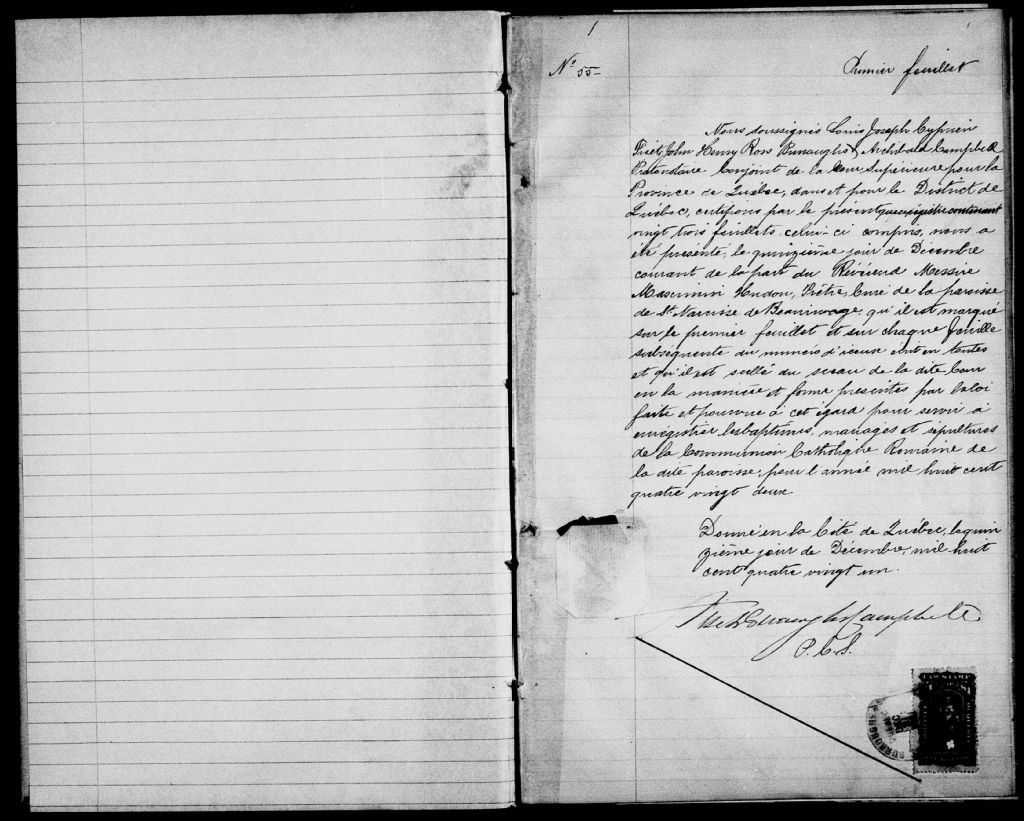 1
No 55-
Premier feuillet
Nous soussignés Louis Joseph Cyprien
Fiset John Henry Ross Burroughs & Archibald Campbell
Protonotaire Conjoint de la Cour Supérieure pour la
Province de Québec, dans et pour le District de
Québec, certifions par le présent que ce régistre contenant
vingt trois feuillets, celui-ci compris, nous a
été présenté, le quinzième jour de Décembre
courant de la part du Révérend Messire
Hudon, Prêtre, Curé de la paroisse
de St Narcisse de Beaurivage, qu'il est marqué
sur le premier feuillet et sur chaque feuille
subséquente du numéro d'iceux écrit en toutes
et qu'il est scellé du sceau de la dite Cour
en la manière et forme prescrites par la loi
faite et pourvue à cet égard pour servir à
enrégistrer les baptêmes, mariages et sépultures
de la Communion Catholique Romaine de
la dite paroisse, pour l'année mil huit cent
quatre vingt deux
Donné en la Cité de Québec, le quin
zième jour de Décembre, mil huit
cent quatre vingt un.
Fiset Burroughs Campbell
P.C.S.
LAW STAMP
BURROUGHS